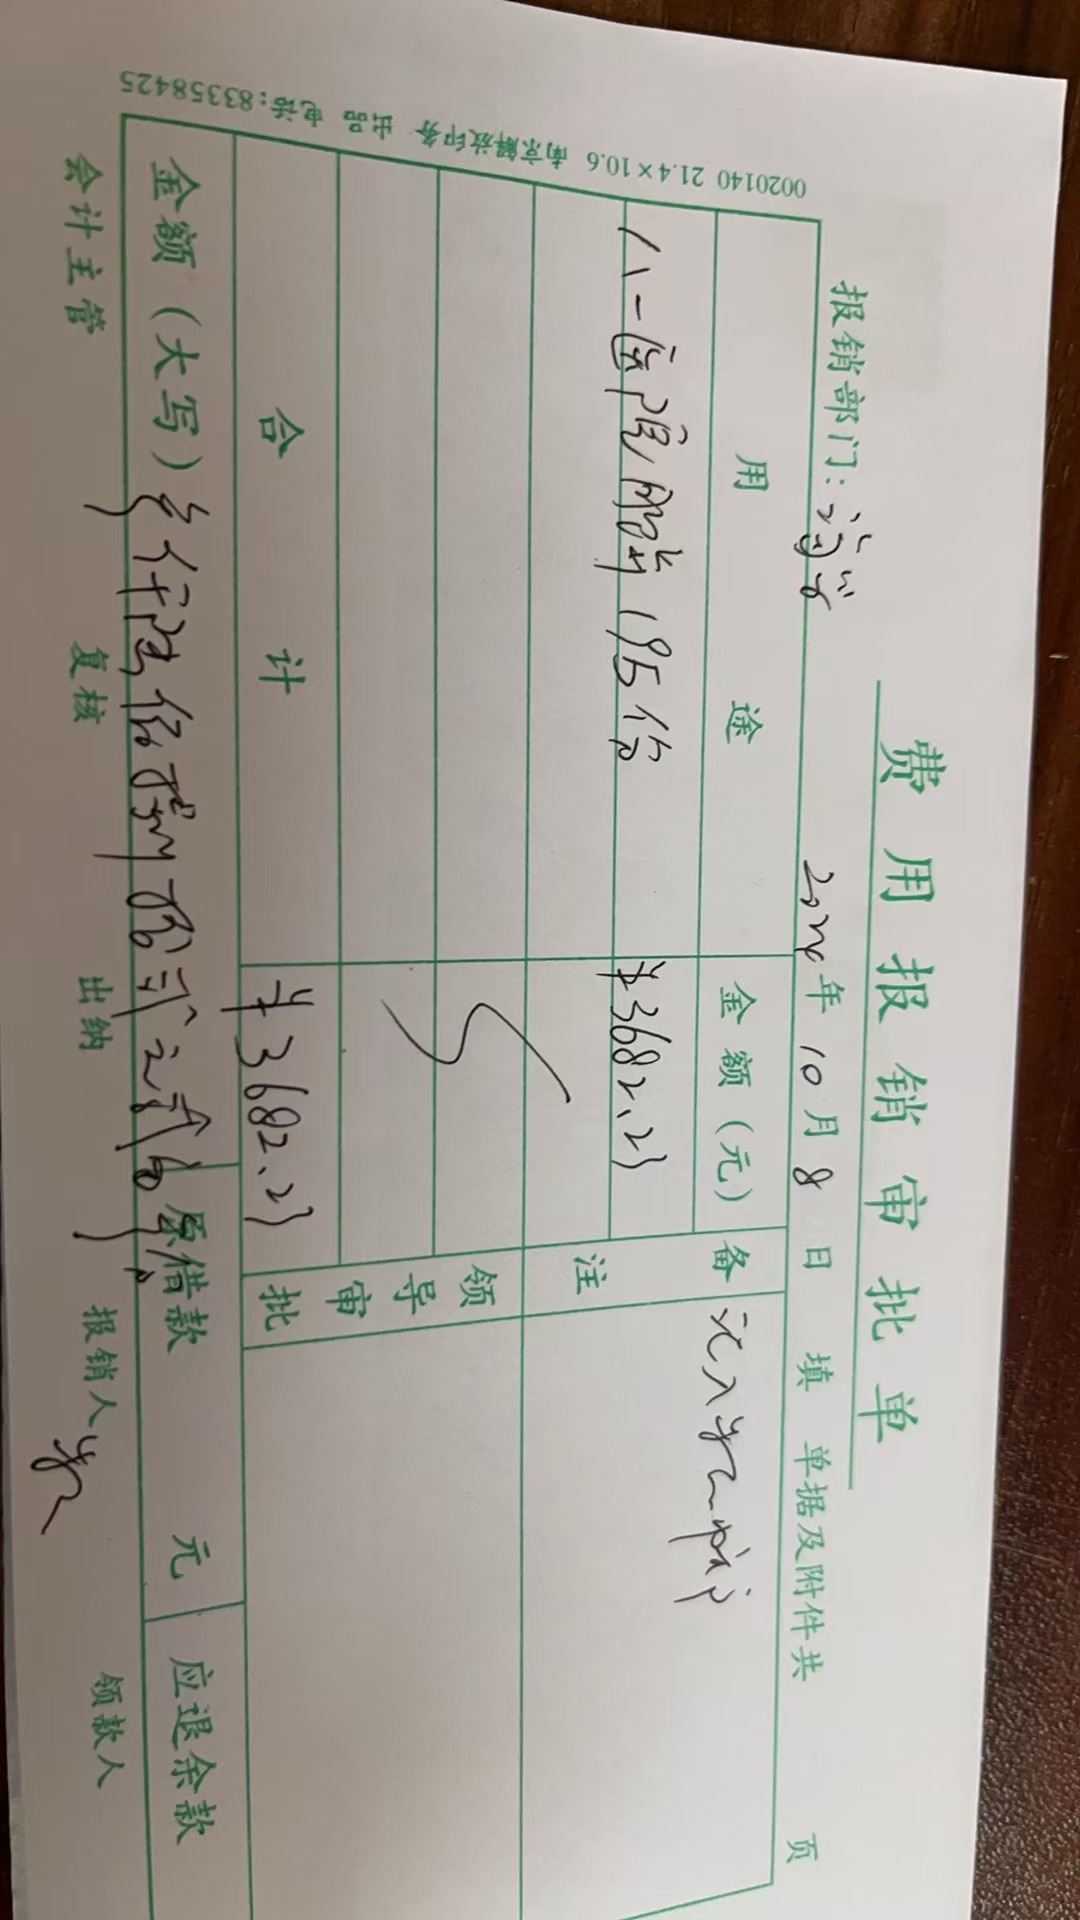 费用报销审批单
报销部门:
2024年10月8日填 单据及附件共 页
用途 金额(元) 备注
八一医院 195份 ¥3682.23
领导审批
合计 ¥3682.23
金额(大写)叁仟陆佰捌拾贰元贰角叁分 原借款 元 应退余款
会计主管 复核 出纳 报销人 领款人
0020140 21.4×10.6 南京解放印务 出品 电话:83358425